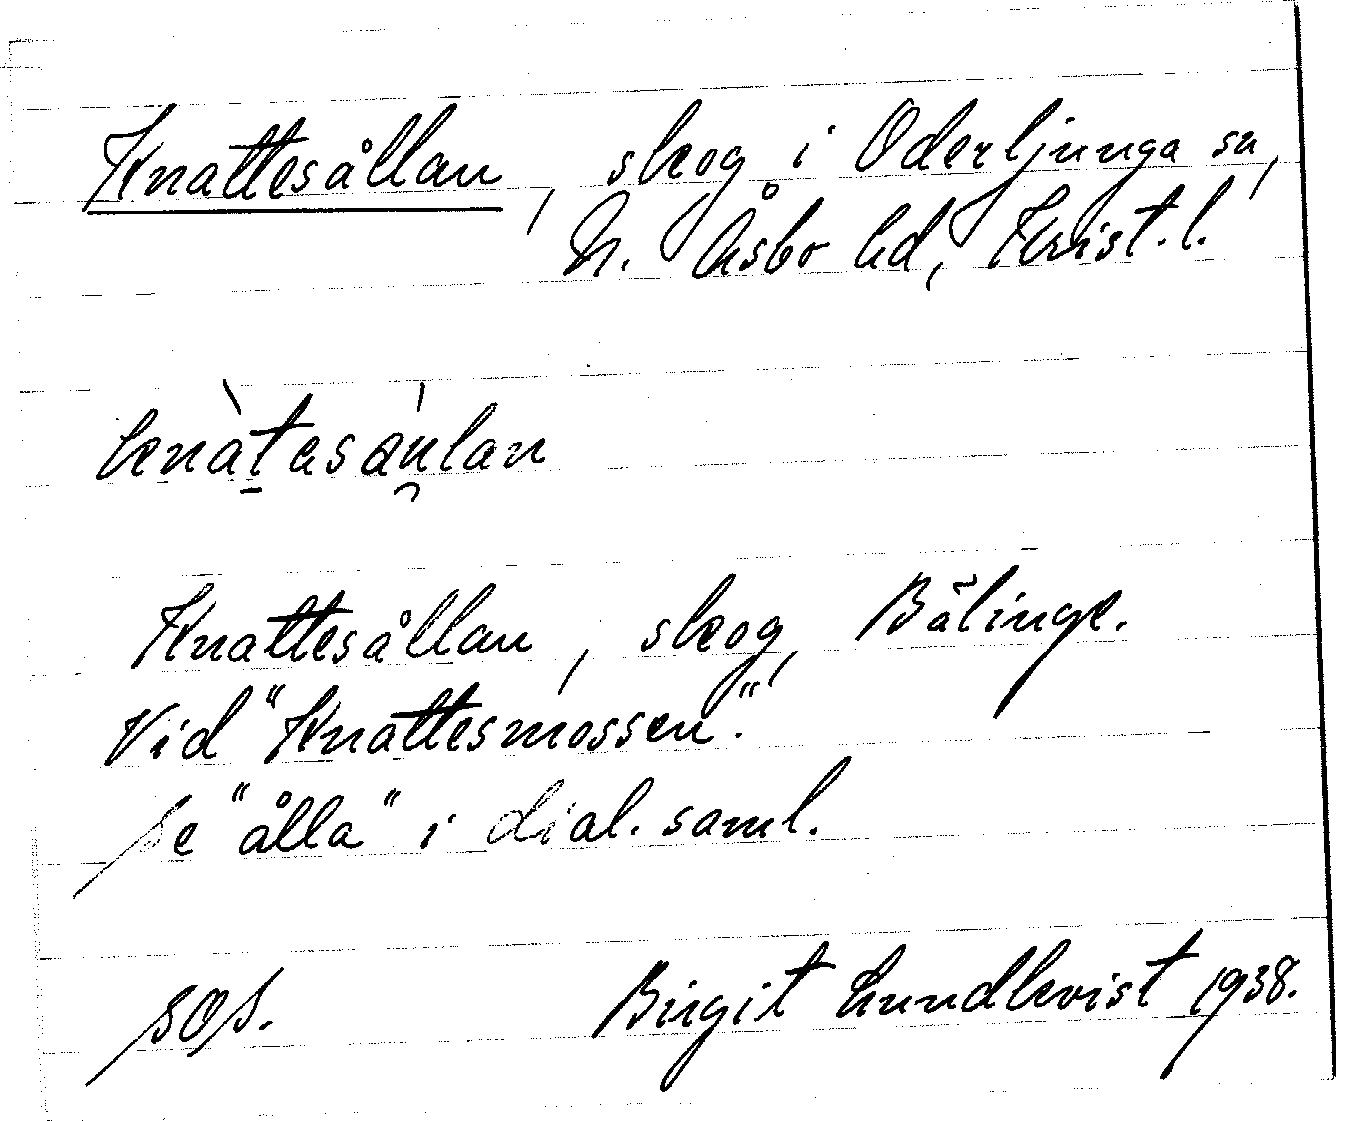 Knattesållan, skog i Oderljunga sn,
N. Åsbo hd, Krist. l.
knàtasáu̯lan
Knattesållan, skog, Bälinge.
Vid "Knattesmossen".
Se "ålla" i dial. saml.
SOS. Birgit Lundkvist 1938.